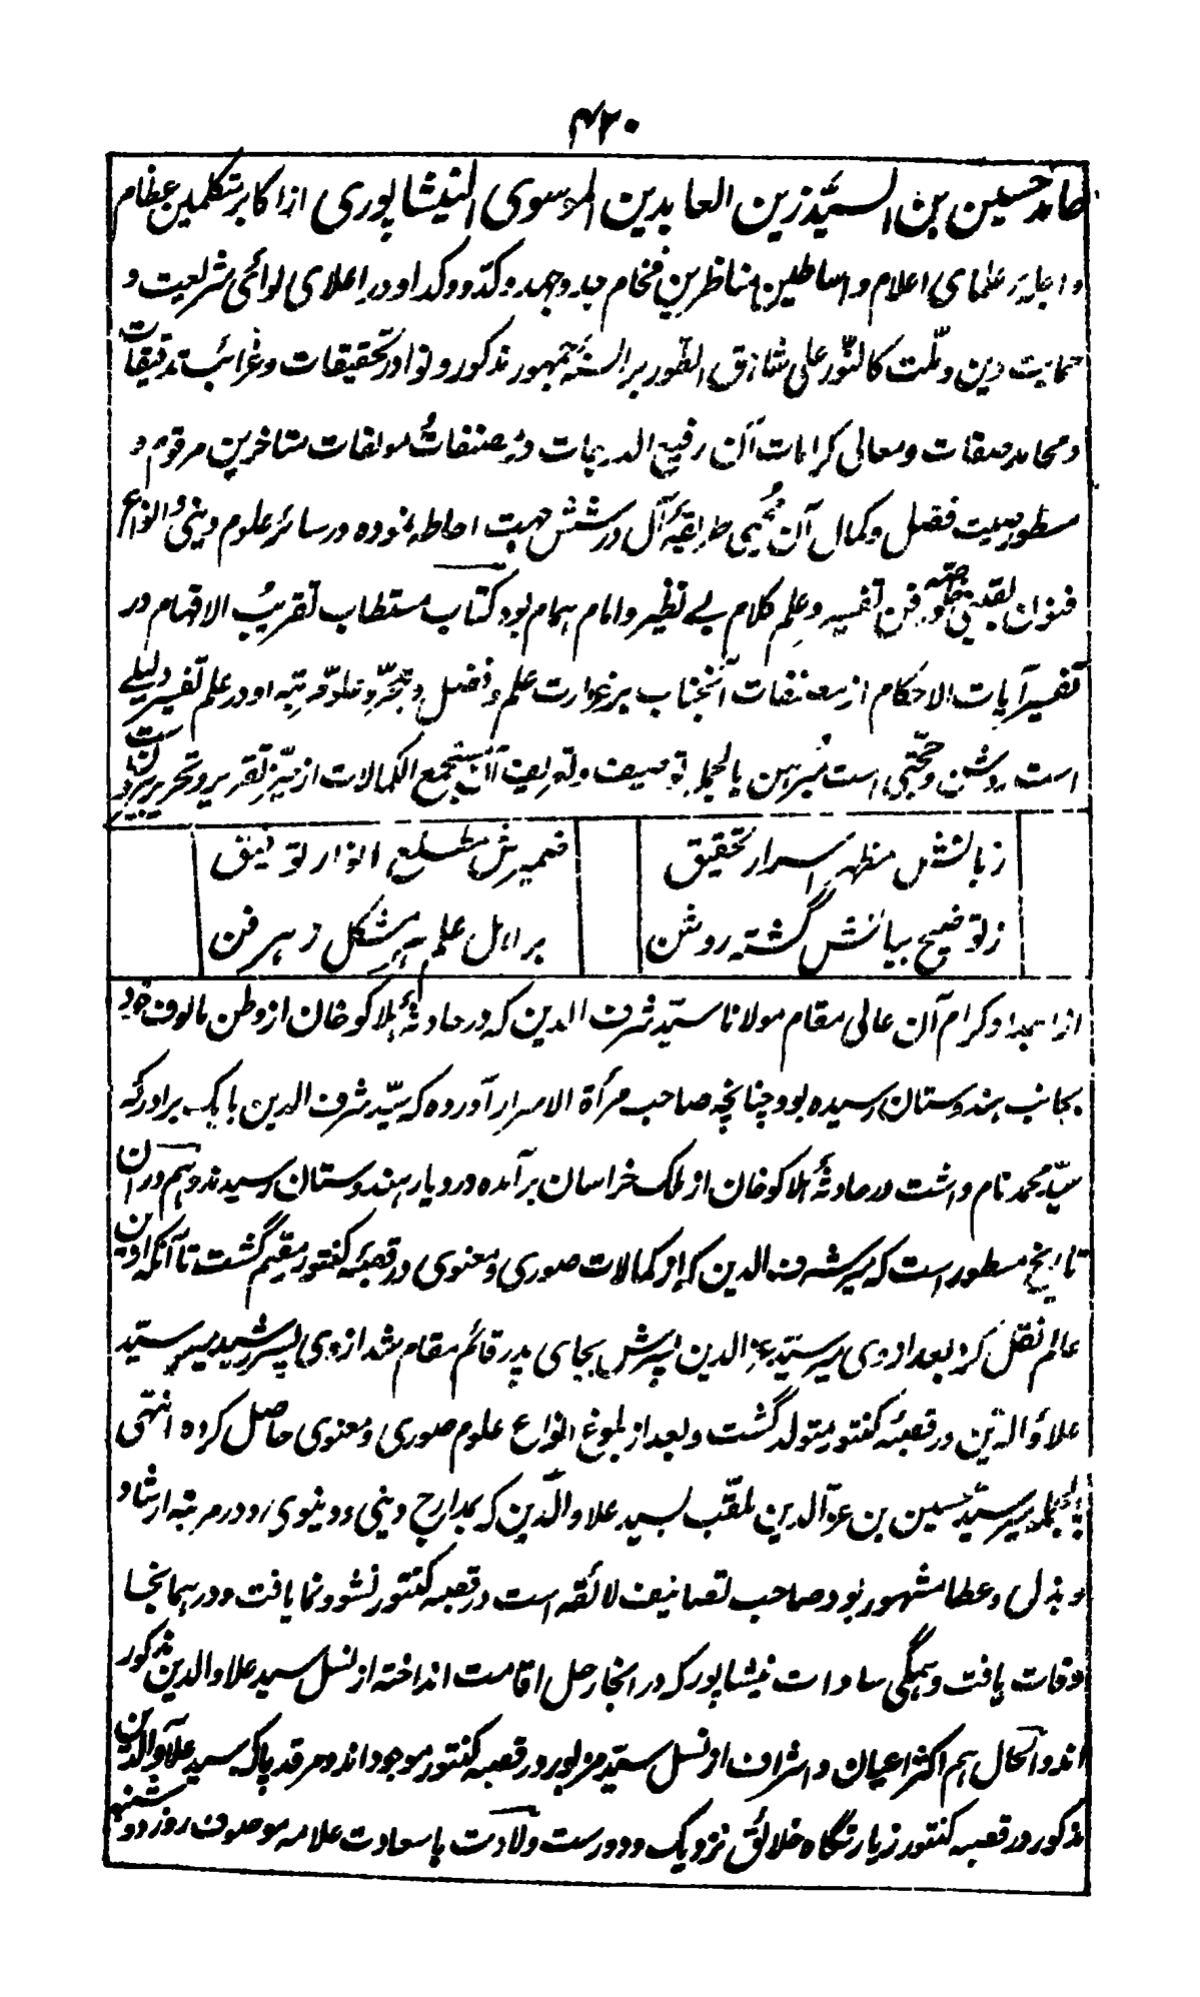 ۴۲۰
حامد حسین بن السیّد زین العابدین الموسوی النیشاپوری از اکابر متکلمین عظام
و اعاظم علمای اعلام و اساطین مناظرین فخام جد و جهد و کدّ و وکد او در اعلای لوائی شریعت و
حمایت دین و ملّت کالنّور علی شاهق الطّور بر السنهٔ جمهور مذکور و نوادر تحقیقات و غرائب تدقیقات
و محامد صفات و معالی کرامات آن رفیع الدرجات در مصنفات و مولفات متاخرین مرقوم و
مسطور صیت فضل و کمال آن مُحیی طریقهٔ آل در شش جهت احاطه نموده در سائر علوم دینی و انواع
فنون یقینی خصوص در فن تفسیر و علم کلام بے نظیر و امام همام بود کتاب مستطاب تقریبُ الافهام در
تفسیر آیات الاحکام از مصنفات آنجناب بر غزارت علم و فضل و تبحّر و علوّ مرتبه او در علم تفسیر دلیلے
است روشن و حجّتی است مُبرهن بالجمله توصیف و تعریف آن مستجمع الکمالات از حیّز تقریر و تحریر بیرون ست
زبانش مظهر اسرار تحقیق ضمیرش مطلع انوار توفیق
ز توضیح بیانش گشته روشن بر اهل علم هر مشکل ز هر فن
از اجداد کرام آن عالی مقام مولانا سیّد شرف الدین که در حادثهٔ هلاکو خان از وطن مالوف خود
بجانب هندوستان رسیده بود چنانچه صاحب مرأة الاسرار آورده که سیّد شرف الدین با یک برادر که
سیّد محمد نام داشت در حادثهٔ هلاکو خان از ملک خراسان بر آمده در دیار هندوستان رسیدند و هم در آن
تاریخ مسطور است که میر شرف الدین که از کمالات صوری و معنوی در قصبهٔ کنتور مقیم گشت تا آنکه ازین
عالم نقل کرد بعد از وی میر سیّد عز الدین پسرش بجای پدر قائم مقام شد از وی پسر رشید میر سیّد
علاؤ الدّین در قصبهٔ کنتور متولد گشت و بعد از بلوغ انواع علوم صوری و معنوی حاصل کرده انتهٰی
بالجمله میر سیّد حسین بن عزّ الدین ملقّب بسید علاو الدّین که بمدارج دینی و دنیوی رو در مرتبه ارشاد
و بذل و عطا مشهور بود صاحب تصانیف لائقه است در قصبه کنتور نشو و نما یافت و در همانجا
وفات یافت و همگی سادات نیشاپور که در انجا رحل اقامت انداخته از نسل سید علاو الدین مذکور
اند و الحال هم اکثر اعیان و اشراف از نسل سیّد مزبور در قصبه کنتور موجود اند و مرقد پاک سید علاو الدین
مذکور در قصبه کنتور زیارتگاه خلائق نزدیک و دور ست ولادت با سعادت علامه موصوف روز دوشنبه